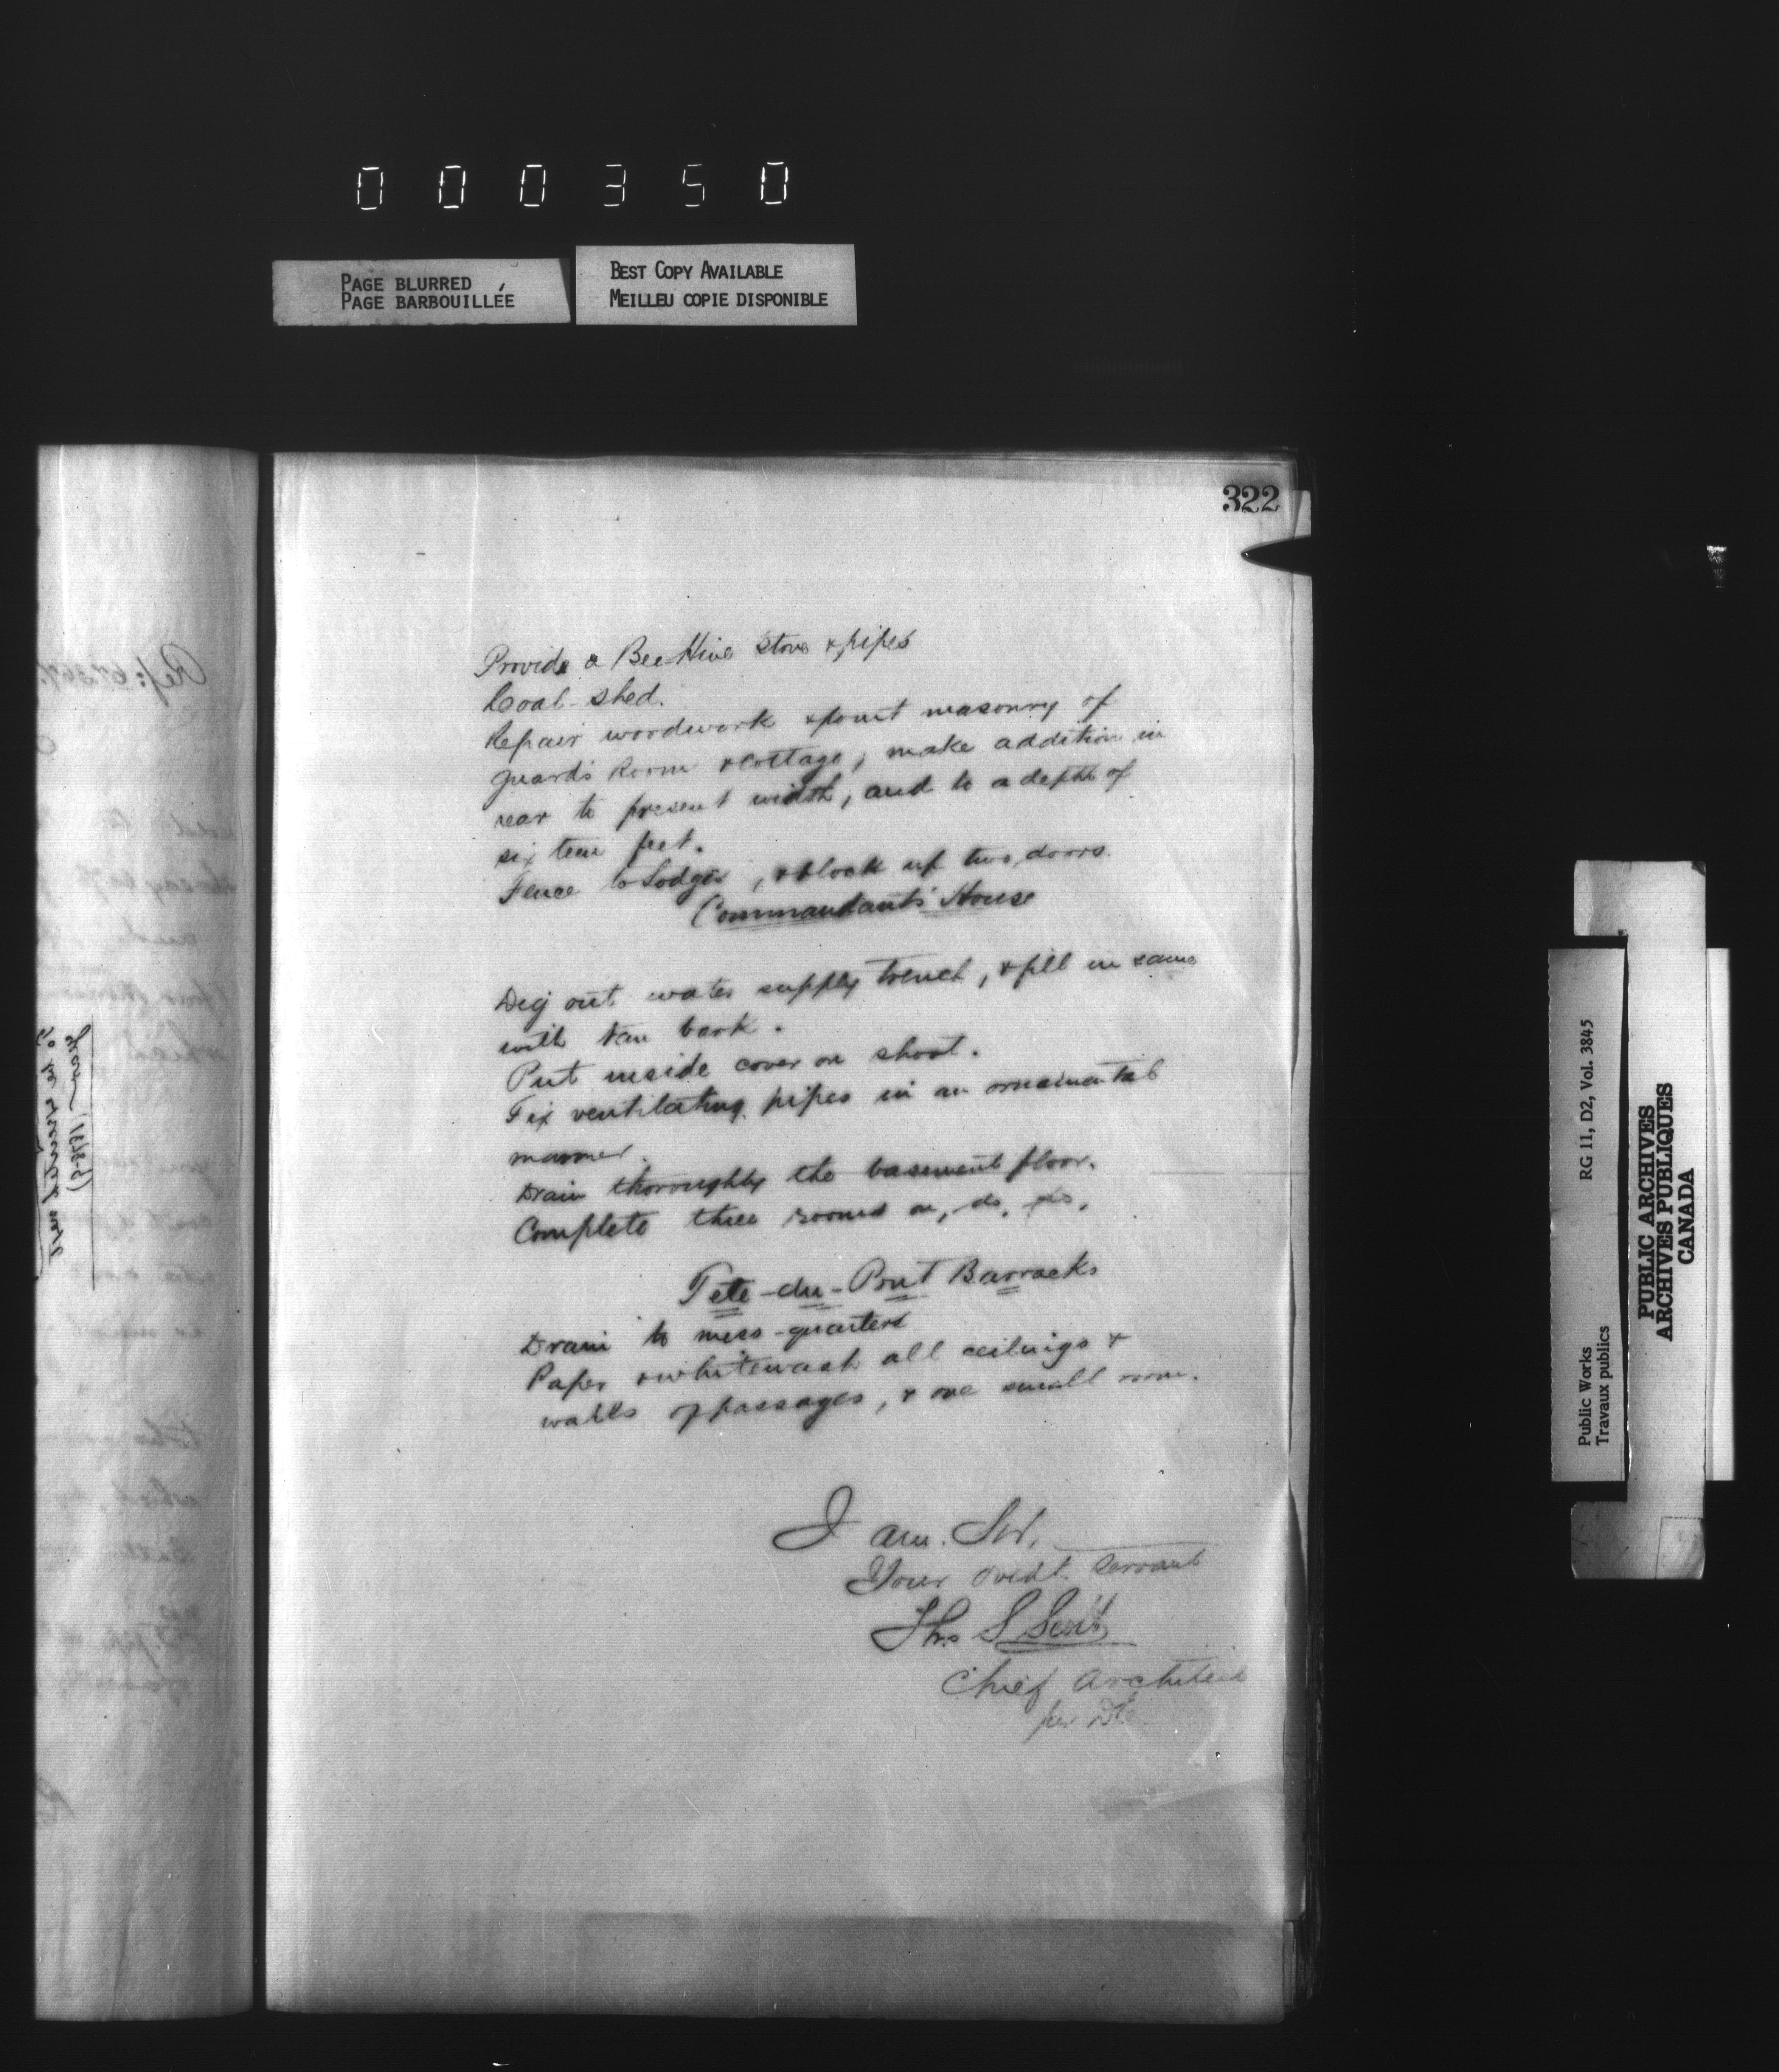 000350
PAGE BLURRED
PAGE BARBOUILLÉE
BEST COPY AVAILABLE
MEILLEU COPIE DISPONIBLE
322
Provide a Bee-Hive Stove & pipes
Coal-shed.
Repair woodwork & point masonry of
guard's Room & Cottage; make addition in
rear to present width, and to a depth of
sixteen feet.
Fence to Lodges, & block up two doors.
Commandant's House
Dig out water supply trench, & fill in same
with tan bark.
Put inside cover on shoot.
Fix ventilating pipes in an ornamental
manner.
Drain thoroughly the basement floor.
Complete three rooms on, do. do.
Tete-du-Pont Barracks
Drain to mess-quarters
Paper & whitewash all ceilings &
walls of passages, & one small room.
I am. Sir,
Your Obedt. Servant
Thos S Scott
Chief Architect
per
Ref: 67369
RG 11, D2, Vol. 3845
Public Works
Travaux publics
PUBLIC ARCHIVES
ARCHIVES PUBLIQUES
CANADA